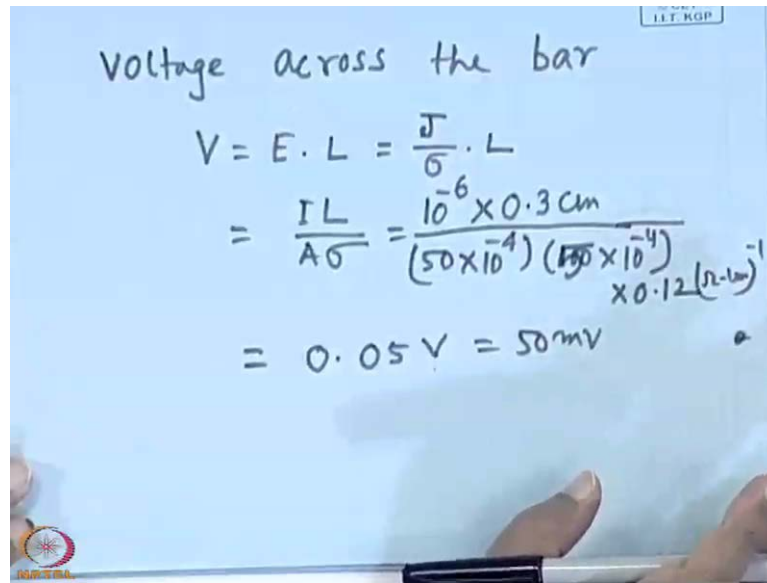 I.I.T. KGP
Voltage across the bar
V = E . L = J/σ . L
= IL/Aσ = 10^-6 × 0.3 cm / (50×10^-4) (100 × 10^-4) × 0.12 (Ω-cm)^-1
= 0.05 V = 50 mV
NPTEL